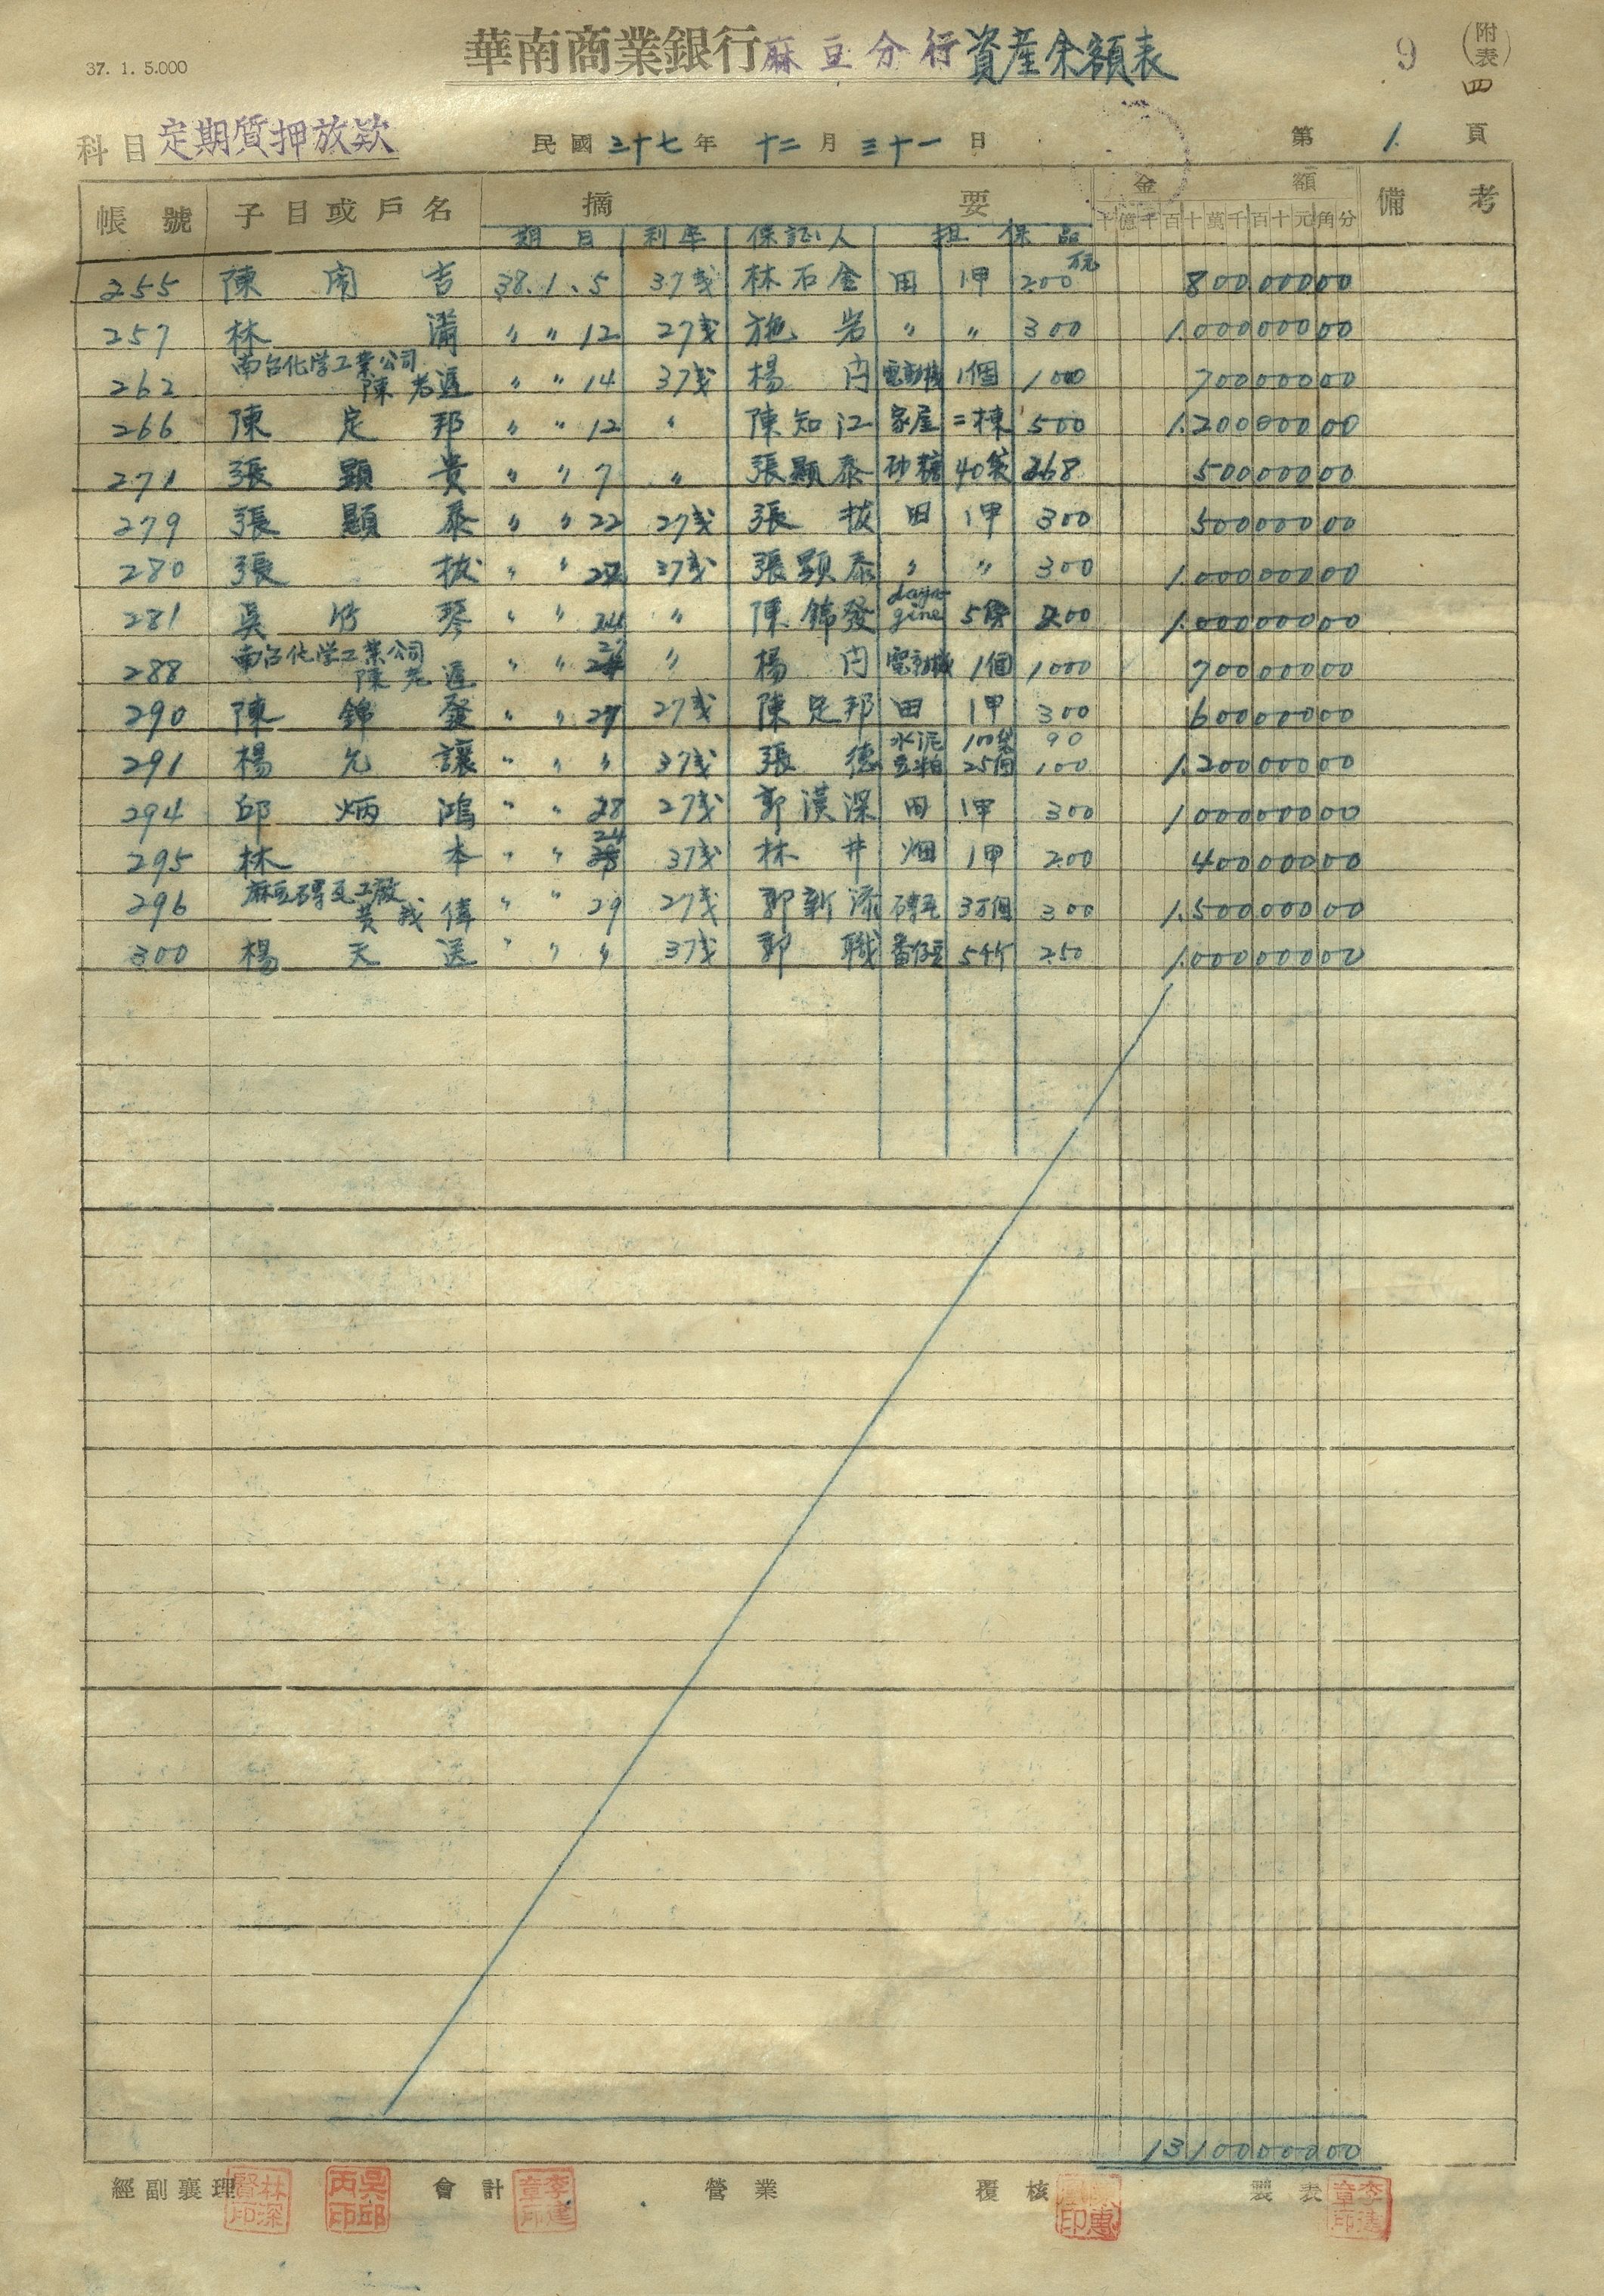 37. 1. 5.000
華南商業銀行麻豆分行資産余額表
9
(附表)四
科目 定期質押放欵
民國三十七年 十二月 三十一日
第 1. 頁
帳號 子目或戶名 摘要 金額 備考
千億千百十萬千百十元角分
期日 利率 保証人 担保品
255 陳 吉 38.1.5 37戋 林石金 田 1甲 200万元 80000000
257 林 滿 〃 〃 12 27戋 施岩 〃 〃 300 1.00000000
南台化学工業公司
262 陳 〃 〃 14 37戋 楊 電動機 1個 1000 70000000
266 陳定邦 〃 〃 12 〃 陳知江 家屋 二棟 500 1.20000000
271 張顯貴 〃 〃 7 〃 張顯泰 砂糖 40袋 268 50000000
279 張顯泰 〃 〃 22 27戋 張拔 田 1甲 300 50000000
280 張拔 〃 〃 22 37戋 張顯泰 〃 〃 300 1.00000000
281 吳 琴 〃 〃 24 〃 陳錦發 5 200 1.00000000
南台化学工業公司
288 陳 〃 〃 27 〃 楊 電動機 1個 1000 70000000
290 陳錦發 〃 〃 27 27戋 陳定邦 田 1甲 300 60000000
水泥 100袋 90
291 楊允讓 〃 〃 〃 37戋 張德 豆粕 25個 100 1.20000000
294 邱炳鴻 〃 〃 28 27戋 郭漢深 田 1甲 300 100000000
295 林本 〃 〃 24 37戋 林井 畑 1甲 200 40000000
麻豆磚瓦工廠
296 黃 偉 〃 〃 29 27戋 郭新添 磚瓦 3万個 300 1.50000000
300 楊天送 〃 〃 〃 37戋 郭職 番仔豆 5千斤 250 1.00000000
1310000000
經副襄理 林深賢印 吳邱丙印 會計 李建章印 營業 覆核 製表 李建章印